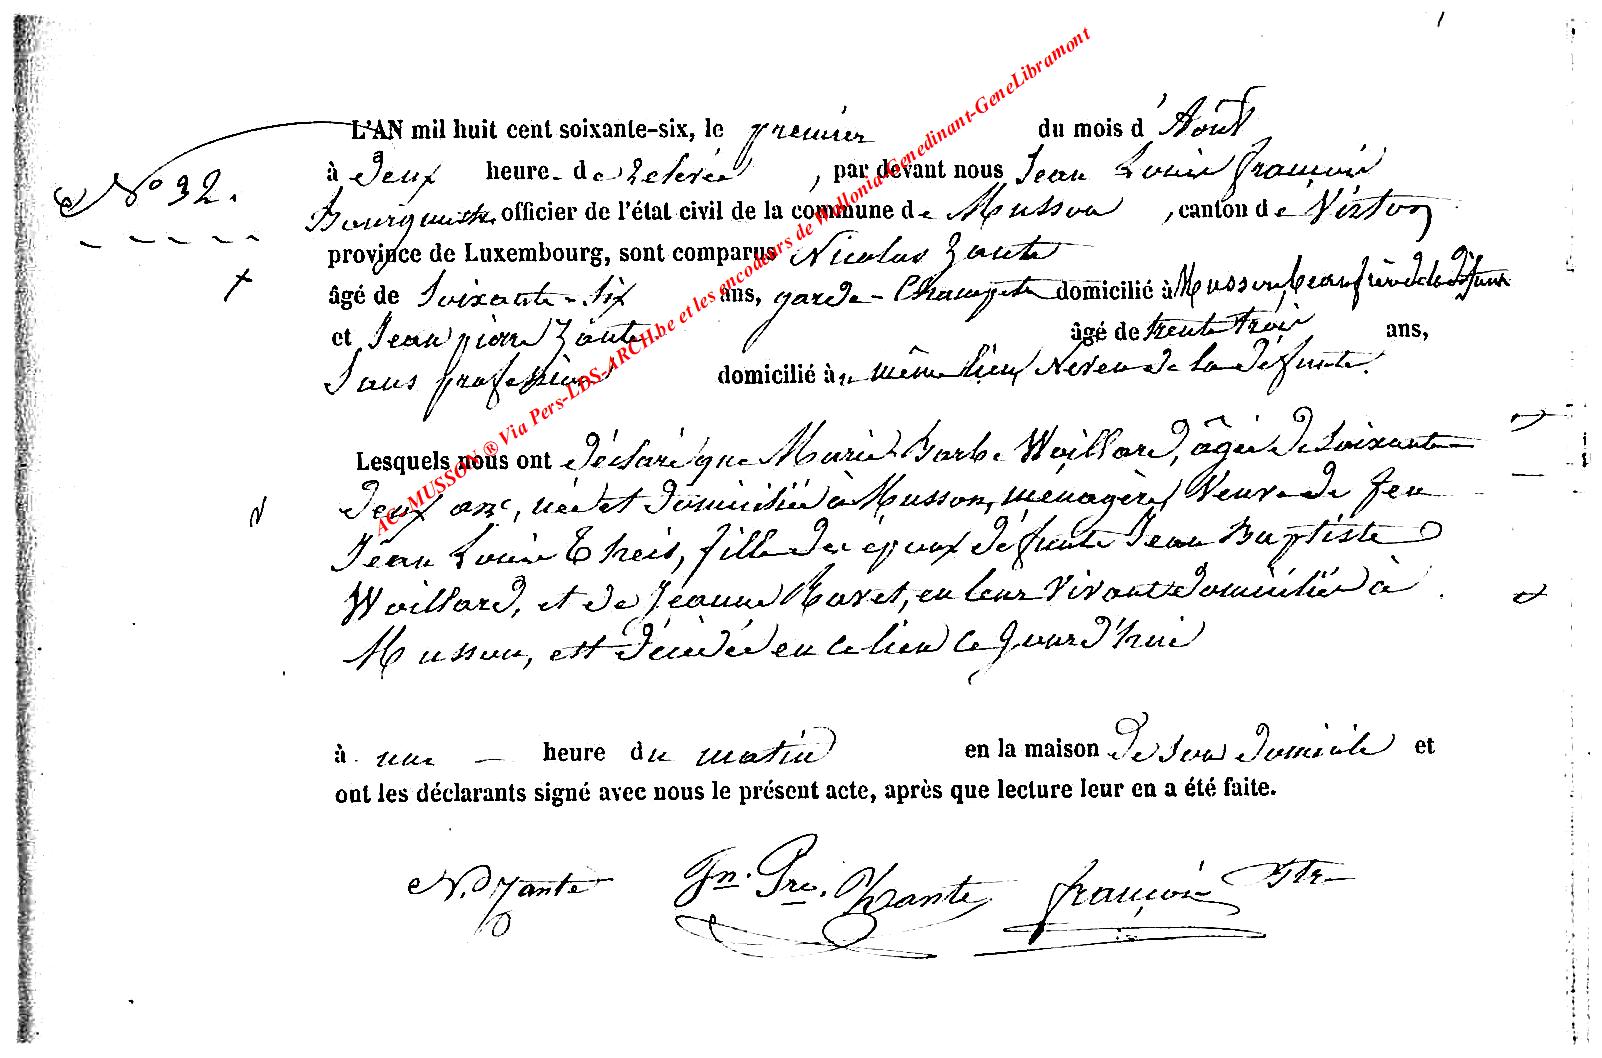 L'AN mil huit cent soixante-six, le premier du mois d'Août
à deux heure de relevée, par devant nous Jean Louis François
N° 32.
Bourguenon officier de l'état civil de la commune de Musson, canton de Virton
province de Luxembourg, sont comparus Nicolas Zante
âgé de Soixante-six ans, garde-Champetre domicilié à Musson, beau frère de la défunte
et Jean pierre Zante âgé de trente trois ans,
Sans profession domicilié à même lieu, Neveu de la défunte.
Lesquels nous ont déclaré que Marie Barbe Waillard, âgée de Soixante
deux ans, née et domiciliée à Musson, ménagère, Veuve de feu
Jean Louis Theis, fille des époux défunts Jean Baptiste
Waillard, et de Jeanne Ravet, en leur vivant domiciliés à
Musson, est décédée en ce lieu ce jourd'hui
à une heure du matin en la maison de son domicile et
ont les déclarants signé avec nous le présent acte, après que lecture leur en a été faite.
N. Zante Jn. Pre. Zante françois
AC-MUSSON ® Via Pers-LDS-ARCH.be et les encodeurs de Wallonia-Genedinant-GeneLibramont